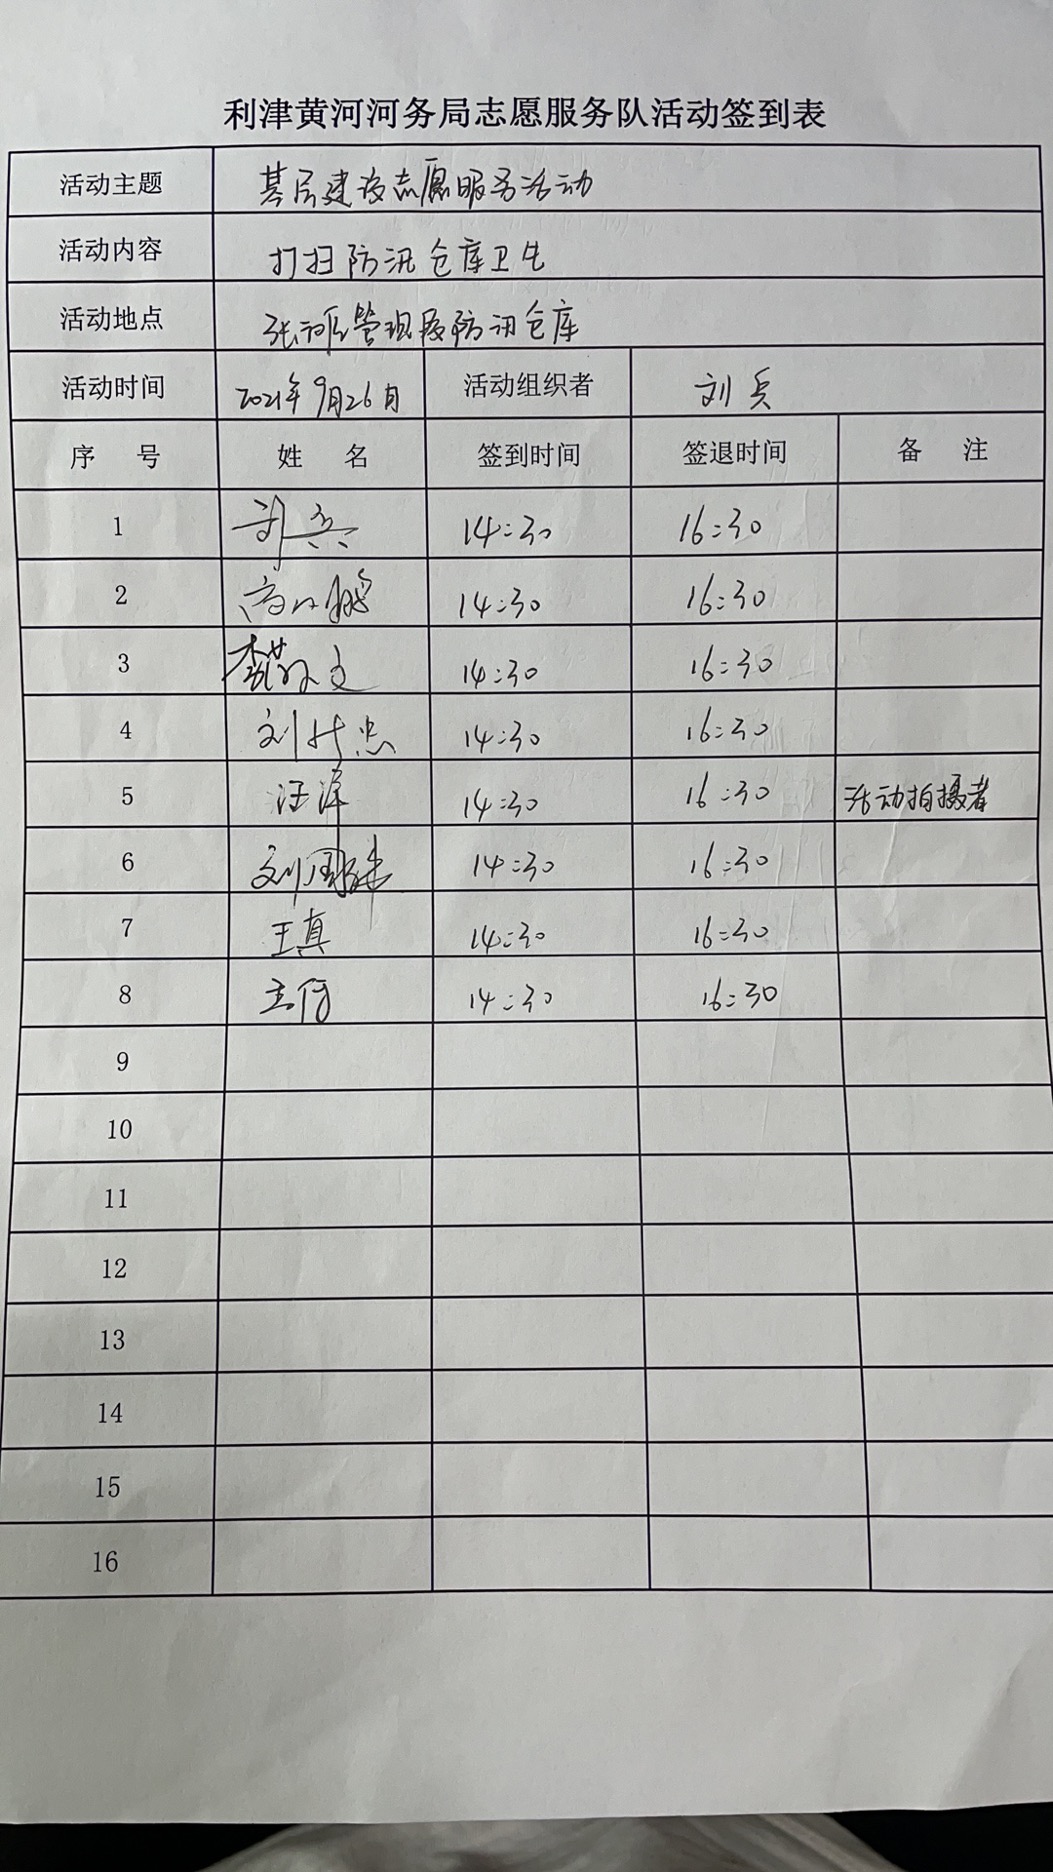 利津黄河河务局志愿服务队活动签到表
活动主题 基层建设志愿服务活动
活动内容 打扫防汛仓库卫生
活动地点 张滩管理段防汛仓库
活动时间 2021年9月26日 活动组织者 刘兵
序 号 姓 名 签到时间 签退时间 备 注
1 刘兵 14:30 16:30
2 14:30 16:30
3 14:30 16:30
4 刘 忠 14:30 16:30
5 汪洋 14:30 16:30 活动拍摄者
6 刘国 14:30 16:30
7 王真 14:30 16:30
8 14:30 16:30
9
10
11
12
13
14
15
16